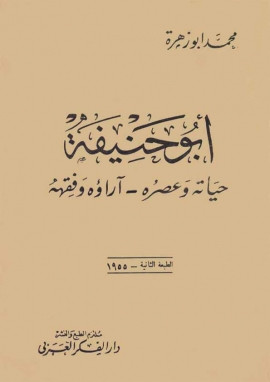 محمد ابو زهرة
أبو حنيفة
حياته وعصره - آراؤه وفقهه
الطبعة الثانية - ١٩٥٥
ملتزم الطبع والنشر
دار الفكر العربي